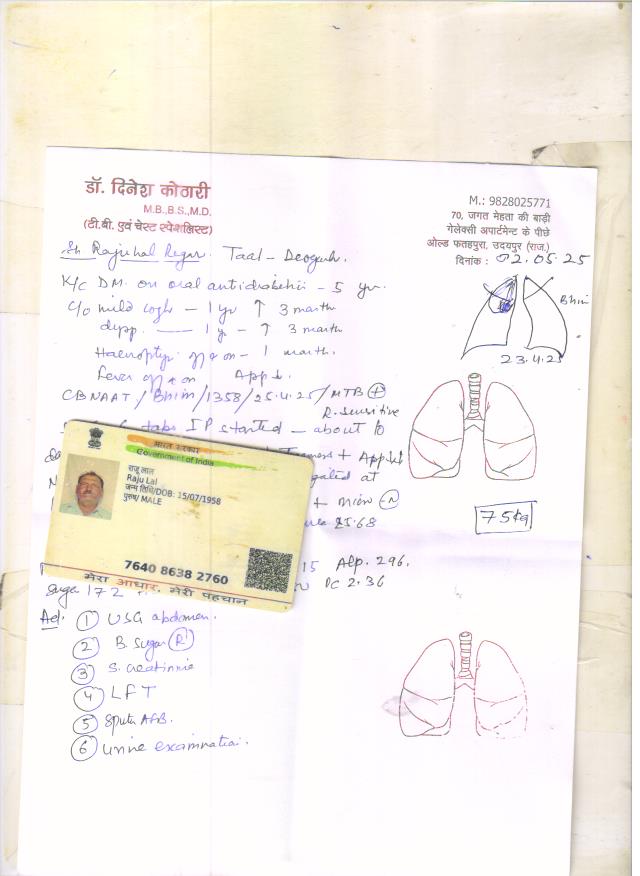 डॉ. दिनेश कोठारी
M.B.,B.S.,M.D.
(टी.बी. एवं चेस्ट स्पेशलिस्ट)
M.: 9828025771
70, जगत मेहता की बाड़ी
गेलेक्सी अपार्टमेन्ट के पीछे
ओल्ड फतहपुरा, उदयपुर (राज.)
दिनांक : 02.05.25
Sh Rajulal Regar. Taal - Deogarh.
K/C DM. on oral antidiabetic - 5 yr.
C/o mild cogh - 1 yr ↑ 3 month
dysp. — 1 yr - ↑ 3 month
Haemoptysis off & on - 1 month.
Fever off & on App↓.
Bhim
23.4.25
CBNAAT / Bhim / 1358 / 25.4.25 / MTB +
R. Sensitive
tabs IP started - about 10
Tremors + App↓
at
+ -N
25.68
75 kg
15 Alp. 296.
Sugar 172 PC 2.36
भारत सरकार
Government of India
राजू लाल
Raju Lal
जन्म तिथि/DOB: 15/07/1958
पुरुष/ MALE
7640 8638 2760
मेरा आधार, मेरी पहचान
Ad.
1 USG abdomen.
2 B. Sugar R
3 S. Creatinine
4 LFT
5 Sputum AFB.
6 Urine examination.